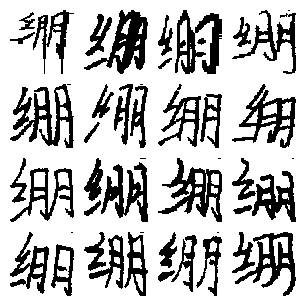 绷绷绷绷
绷绷绷绷
绷绷绷绷
绷绷绷绷